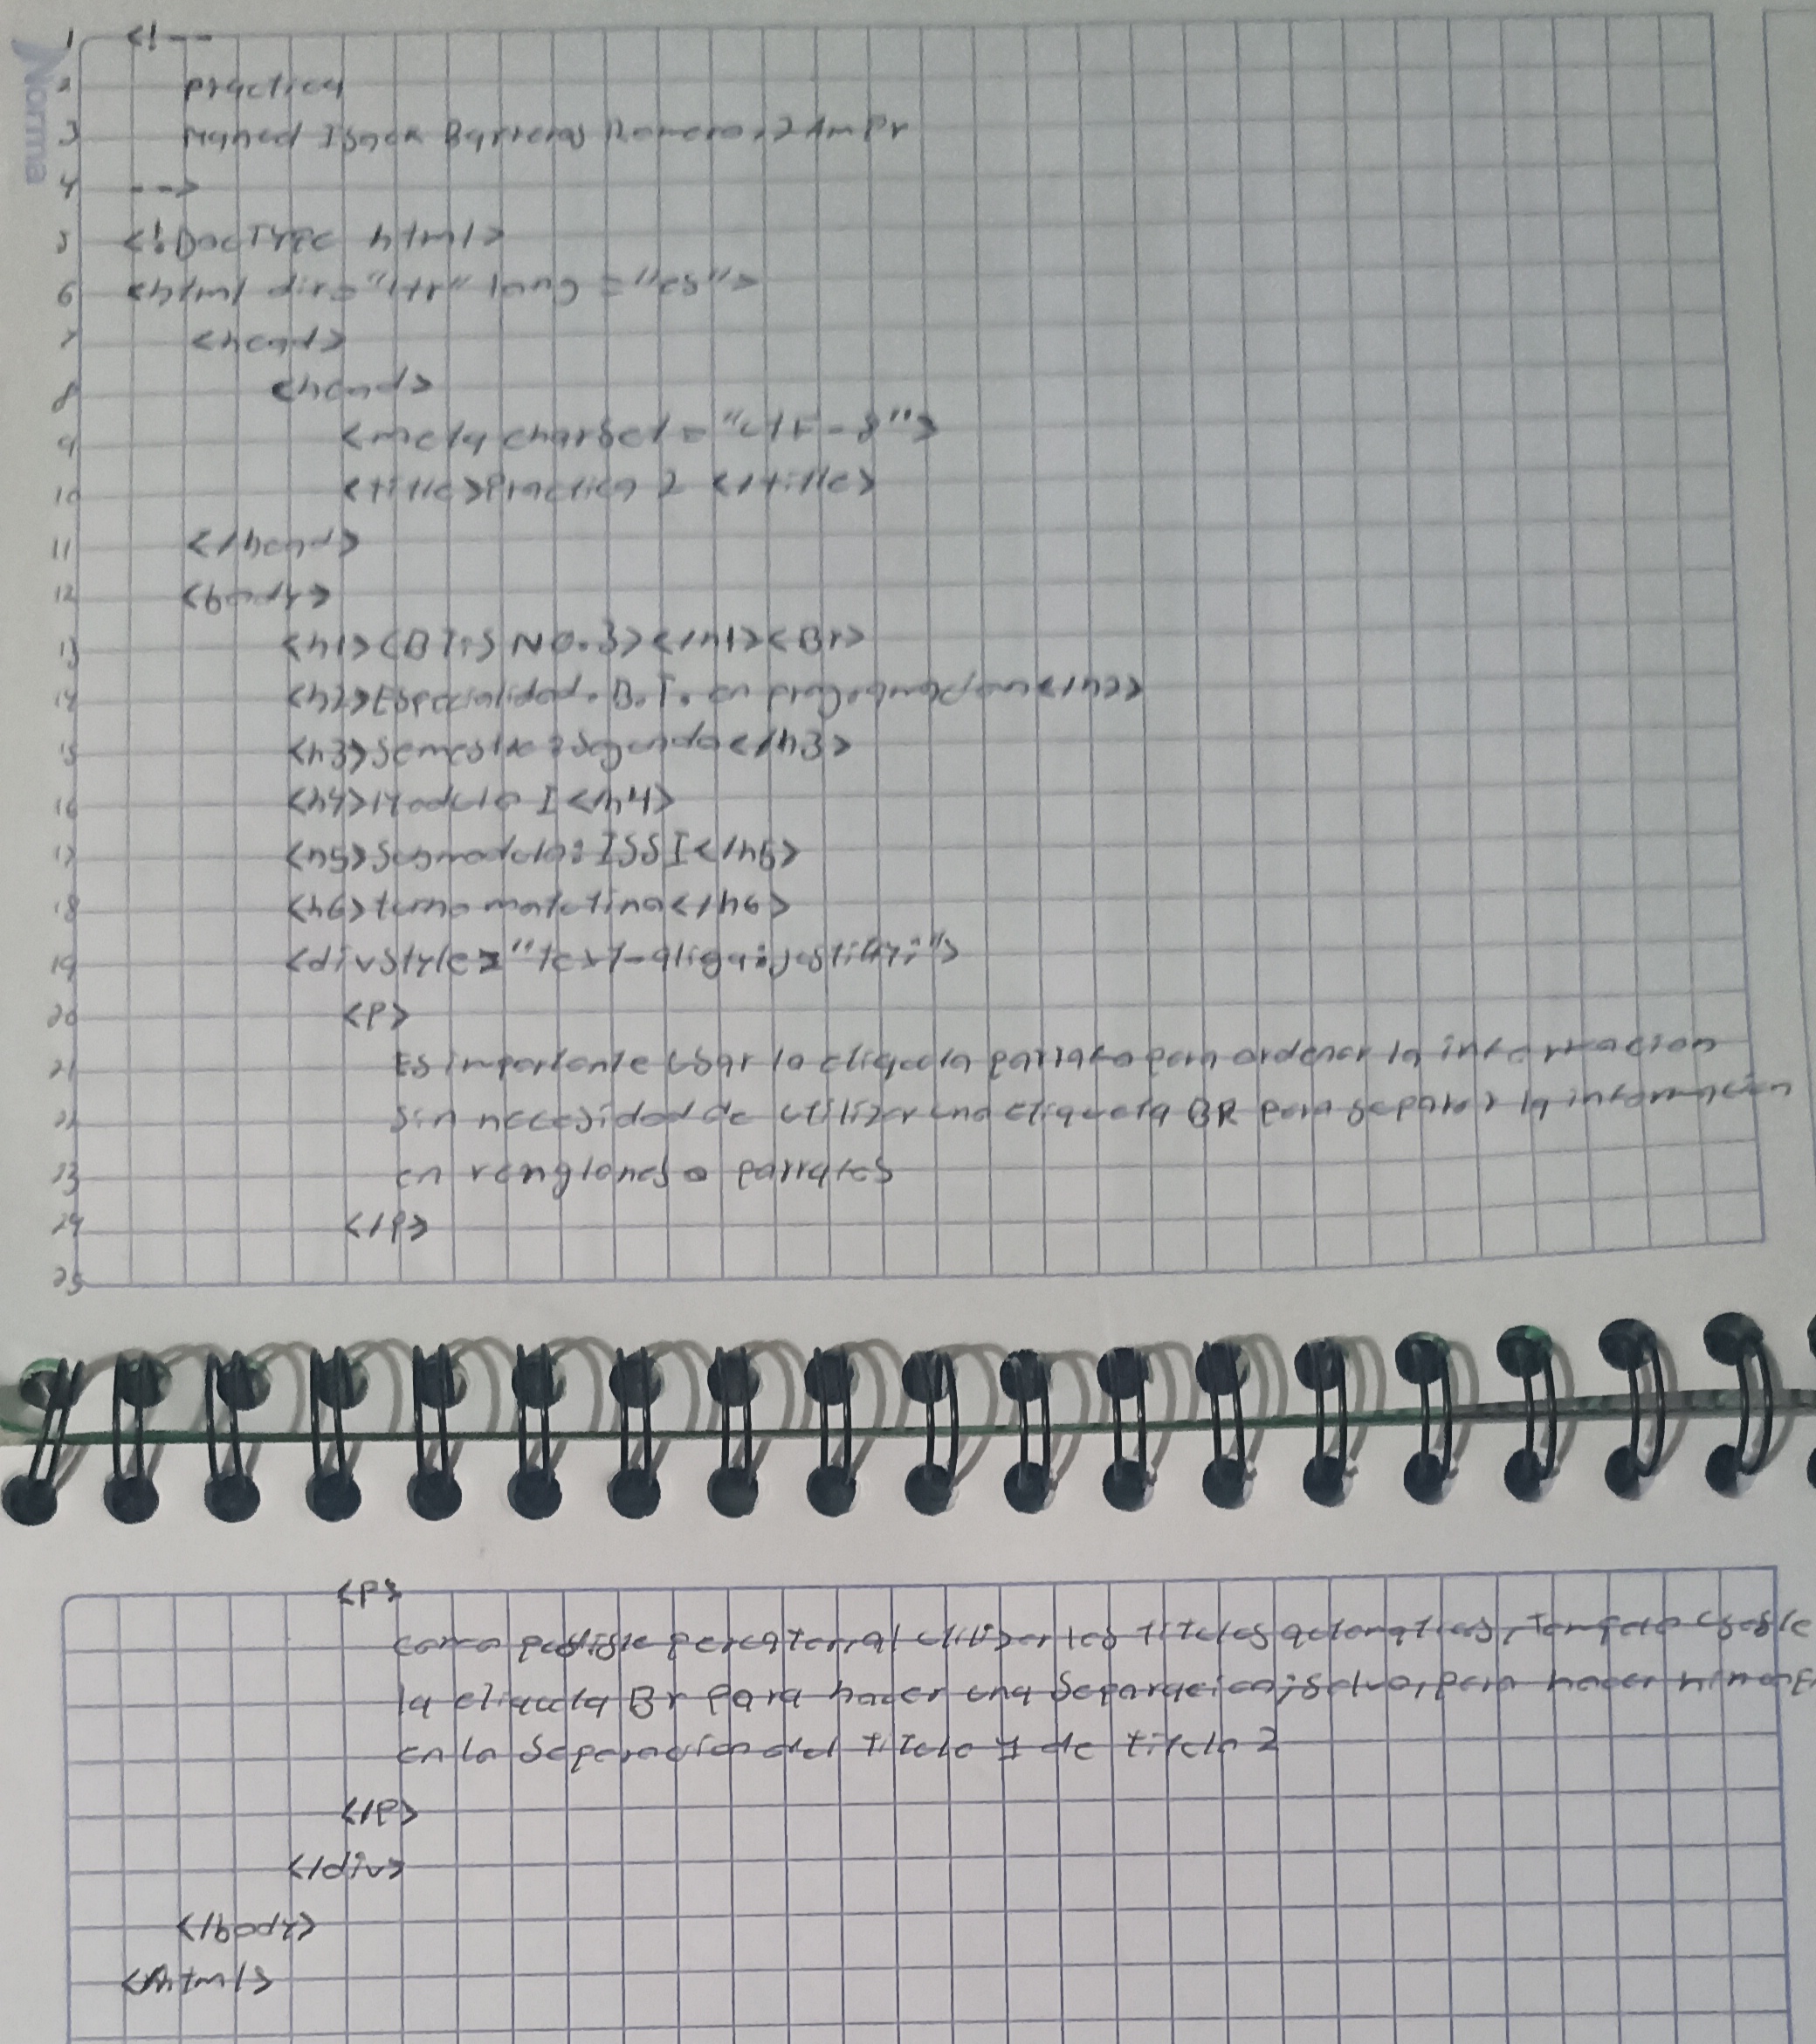 Norma
1 <!--
2 practica
3 Isack Barreras Romero, 2 Am Pr
4 -->
5 <!DocTYPE html>
6 <html dir="ltr" lang="es">
7 <head>
8 <head>
9 <meta charset="utf-8">
10 <title>Practica 2 </title>
11 </head>
12 <body>
13 <h1>CBTis NO.3></h1><Br>
14 <h2>Especialidad. B.T. en programacion</h2>
15 <h3>Semestre:Segundo</h3>
16 <h4>Modulo I</h4>
17 <h5>Submodulo: ISSI</h5>
18 <h6>turno matutino</h6>
19 <div style="text-align:justify;">
20 <P>
21 Es importante usar la etiqueta parrafo para ordenar la informacion
22 sin necesidad de utilizar una etiqueta BR para separar la informacion
23 en renglones o parrafos
24 </P>
25
<P>
como percatar, al utilizar los titulos automaticos, Tampoco
la etiqueta Br para hacer una separacion; salvo, para hacer
en la separacion del titulo 1 de titulo 2
</P>
</div>
</body>
</html>